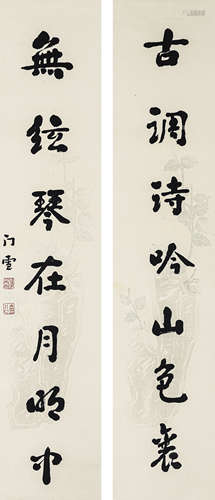 古调诗吟山色裏
無絃琴在月明中
門雪